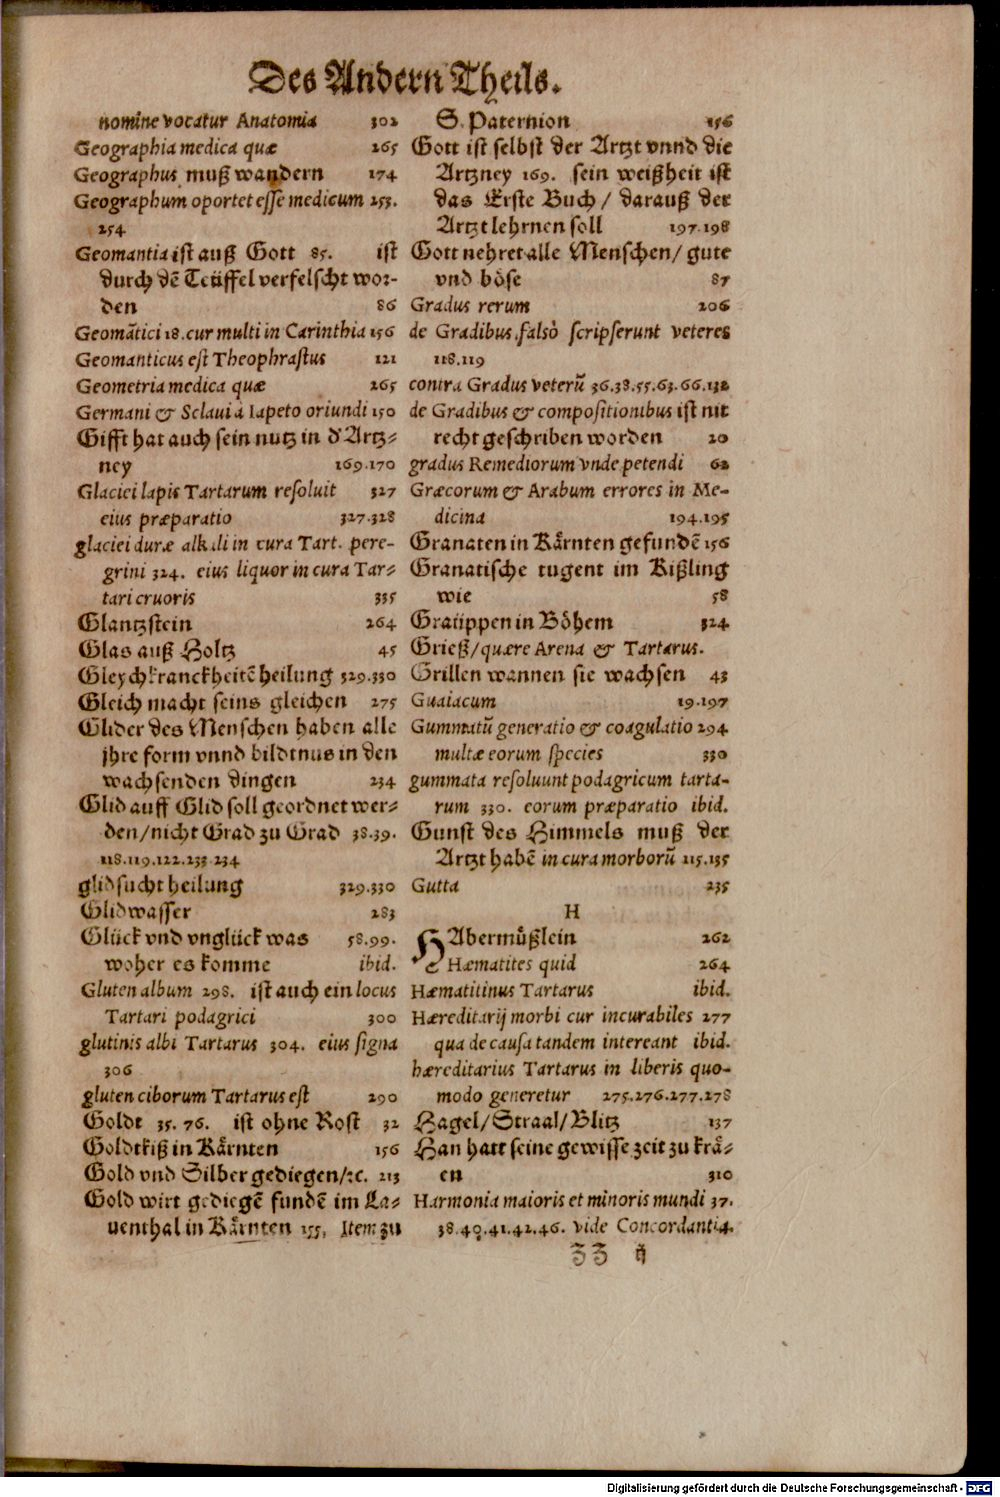 Des Andern Theils.
nomine vocatur Anatomia 302
Geographia medica quæ 265
Geographus muß wandern 174
Geographum oportet esse medicum 253.
254
Geomantia ist auß Gott 85. ist
durch dē Teüffel verfelscht wor-
den 86
Geomātici 18. cur multi in Carinthia 156
Geomanticus est Theophrastus 121
Geometria medica quæ 265
Germani & Sclaui à Iapeto oriundi 150
Gifft hat auch sein nutz in d' Artz-
ney 169.170
Glaciei lapis Tartarum resoluit 327
eius præparatio 327.328
glaciei duræ alkali in cura Tart. pere-
grini 324. eius liquor in cura Tar-
tari cruoris 335
Glantzstein 264
Glas auß Holtz 45
Gleychkranckheitē heilung 329.330
Gleich macht seins gleichen 275
Glider des Menschen haben alle
jhre form vnnd bildtnus in den
wachsenden dingen 234
Glid auff Glid soll geordnet wer-
den/ nicht Grad zu Grad 38.39.
118.119.122.233.234
glidsucht heilung 329.330
Glidwasser 283
Glück vnd vnglück was 58.99.
woher es komme ibid.
Gluten album 298. ist auch ein locus
Tartari podagrici 300
glutinis albi Tartarus 304. eius signa
306
gluten ciborum Tartarus est 290
Goldt 35. 76. ist ohne Rost 32
Goldtkiß in Kärnten 156
Gold vnd Silber gediegen/ꝛc. 213
Gold wirt gediegē fundē im La-
uenthal in Kärnten 155, Item zu
S. Paternion 156
Gott ist selbst der Artzt vnnd die
Artzney 169. sein weißheit ist
das Erste Buch/ darauß der
Artzt lehrnen soll 197.198
Gott nehret alle Menschen/ gute
vnd böse 87
Gradus rerum 206
de Gradibus falsò scripserunt veteres
118.119
contra Gradus veterū 36.38.55.63.66.132
de Gradibus & compositionibus ist nit
recht geschriben worden 20
gradus Remediorum vnde petendi 62
Græcorum & Arabum errores in Me-
dicina 194.195
Granaten in Kärnten gefundē 156
Granatische tugent im Kißling
wie 58
Graüppen in Böhem 324
Grieß/ quære Arena & Tartarus.
Grillen wannen sie wachsen 43
Guaiacum 19.197
Gummatū generatio & coagulatio 294
multæ eorum species 330
gummata resoluunt podagricum tarta-
rum 330. eorum præparatio ibid.
Gunst des Himmels muß der
Artzt habē in cura morborū 115.135
Gutta 235
H
HAbermüßlein 262
Hæmatites quid 264
Hæmatitinus Tartarus ibid.
Hæreditarij morbi cur incurabiles 277
qua de causa tandem intereant ibid.
hæreditarius Tartarus in liberis quo-
modo generetur 275.276.277.278
Hagel/ Straal/ Blitz 137
Han hatt seine gewisse zeit zu krä-
en 310
Harmonia maioris et minoris mundi 37.
38.40.41.42.46. vide Concordantia.
ZZ ij
Digitalisierung gefördert durch die Deutsche Forschungsgemeinschaft - DFG